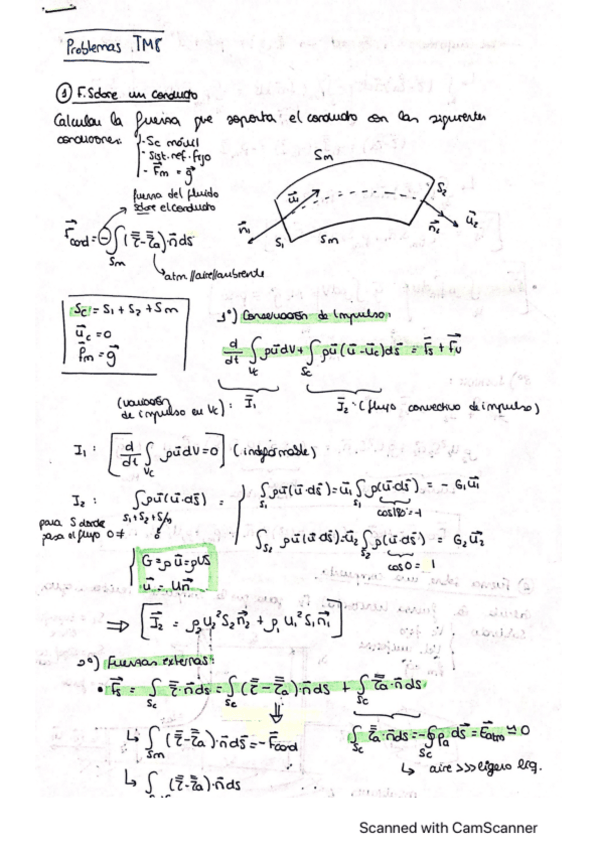 Problemas TMC
① F. Sobre un conducto
Calcular la fuerza que soporta el conducto con las siguientes
condiciones: - Sc móvil
- Sist. ref. Fijo
- F⃗m = g⃗
fuerza del fluido
sobre el conducto
F⃗cond = -∫Sm (τ̿ - τ̿a)·n⃗ ds
atm//aire//ambiente
Sm
u⃗1
n⃗1
S1
Sm
S2
n⃗2
u⃗2
Sc = S1 + S2 + Sm
u⃗c = 0
F⃗m = g⃗
1º) Conservación de Impulso:
d/dt ∫Vc ρu⃗dV + ∫Sc ρu⃗(u⃗ - u⃗c)ds⃗ = F⃗s + F⃗v
(variación de impulso en Vc): I⃗1
I⃗2: (flujo convectivo de impulso)
I1: [d/dt ∫Vc ρu⃗dV = 0] (indeformable)
I2: ∫S1+S2+Sm ρu⃗(u⃗·ds⃗) =
∫S1 ρu⃗(u⃗·ds⃗) = u⃗1 ∫S1 ρ(u⃗·ds⃗) = - G1u⃗1
cos180 = -1
para S donde
pasa el flujo 0 ≠
∫S2 ρu⃗(u⃗·ds⃗) = u⃗2 ∫S2 ρ(u⃗·ds⃗) = G2u⃗2
cos 0 = 1
G = ρu⃗ = ρUS
u⃗ = Un⃗
⇒ [I⃗2 = ρ2U2²S2n⃗2 + ρ1U1²S1n⃗1]
2º) Fuerzas externas:
• F⃗s = ∫Sc τ̿·n⃗ds = ∫Sc (τ̿ - τ̿a)·n⃗ds + ∫Sc τ̿a·n⃗ds
↳ ∫Sm (τ̿ - τ̿a)·n⃗ds = - F⃗cond
∫Sc τ̿a·n⃗ds = -∮Sc Pa ds⃗ = F⃗atm ≈ 0
↳ aire >>> ligero liq.
↳ ∫ (τ̿ - τ̿a)·n⃗ds
Scanned with CamScanner